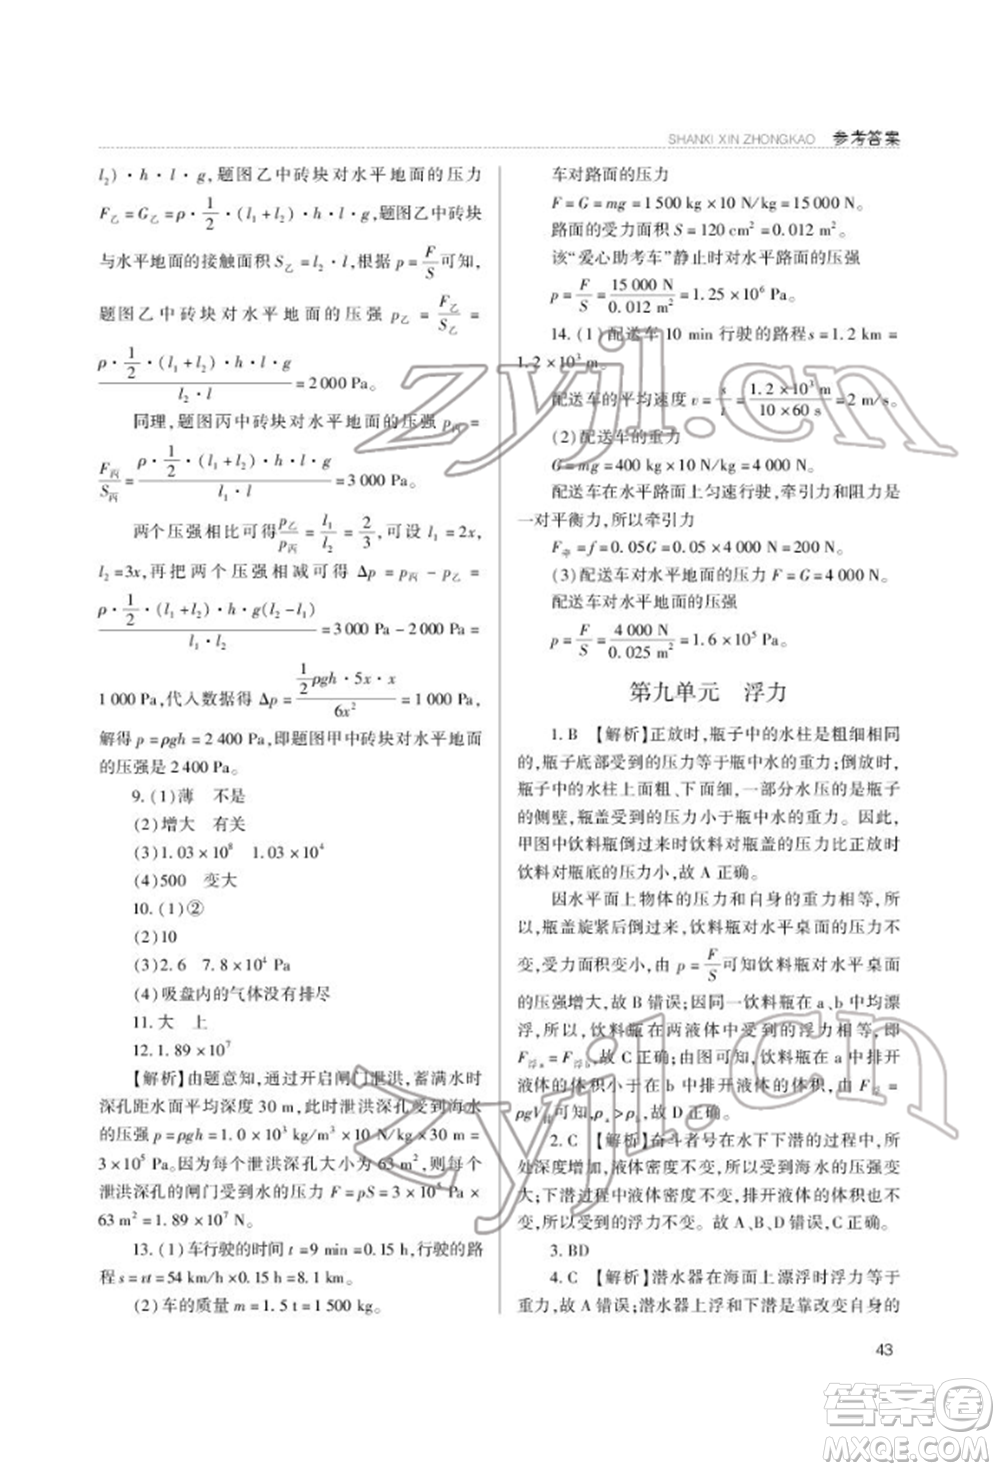 SHANXI XIN ZHONGKAO 参考答案
l₂)·h·l·g,题图乙中砖块对水平地面的压力
F乙=G乙=ρ·1/2·(l₁+l₂)·h·l·g,题图乙中砖块
与水平地面的接触面积 S乙=l₂·l,根据 p=F/S可知,
题图乙中砖块对水平地面的压强 p乙=F乙/S乙=
ρ·1/2·(l₁+l₂)·h·l·g/l₂·l=2 000 Pa。
同理,题图丙中砖块对水平地面的压强 p丙=
F丙/S丙=ρ·1/2·(l₁+l₂)·h·l·g/l₁·l=3 000 Pa。
两个压强相比可得p乙/p丙=l₁/l₂=2/3,可设 l₁=2x,
l₂=3x,再把两个压强相减可得 Δp=p丙-p乙=
ρ·1/2·(l₁+l₂)·h·g(l₂-l₁)/l₁·l₂=3 000 Pa-2 000 Pa=
1 000 Pa,代入数据得 Δp=1/2ρgh·5x·x/6x²=1 000 Pa,
解得 p=ρgh=2 400 Pa,即题图甲中砖块对水平地面
的压强是 2 400 Pa。
9. (1)薄 不是
(2)增大 有关
(3)1.03×10⁸ 1.03×10⁴
(4)500 变大
10. (1)②
(2)10
(3)2.6 7.8×10⁴ Pa
(4)吸盘内的气体没有排尽
11. 大 上
12. 1.89×10⁷
【解析】由题意知,通过开启闸门泄洪,蓄满水时
深孔距水面平均深度 30 m,此时泄洪深孔受到海水
的压强 p=ρgh=1.0×10³ kg/m³×10 N/kg×30 m=
3×10⁵ Pa。因为每个泄洪深孔大小为 63 m²,则每个
泄洪深孔的闸门受到水的压力 F=pS=3×10⁵ Pa×
63 m²=1.89×10⁷ N。
13. (1)车行驶的时间 t=9 min=0.15 h,行驶的路
程 s=vt=54 km/h×0.15 h=8.1 km。
(2)车的质量 m=1.5 t=1 500 kg。
车对路面的压力
F=G=mg=1 500 kg×10 N/kg=15 000 N。
路面的受力面积 S=120 cm²=0.012 m²。
该“爱心助考车”静止时对水平路面的压强
p=F/S=15 000 N/0.012 m²=1.25×10⁶ Pa。
14. (1)配送车 10 min 行驶的路程 s=1.2 km=
1.2×10³ m。
配送车的平均速度 v=s/t=1.2×10³ m/10×60 s=2 m/s。
(2)配送车的重力
G=mg=400 kg×10 N/kg=4 000 N。
配送车在水平路面上匀速行驶,牵引力和阻力是
一对平衡力,所以牵引力
F牵=f=0.05G=0.05×4 000 N=200 N。
(3)配送车对水平地面的压力 F=G=4 000 N。
配送车对水平地面的压强
p=F/S=4 000 N/0.025 m²=1.6×10⁵ Pa。
第九单元 浮力
1. B 【解析】正放时,瓶子中的水柱是粗细相同
的,瓶子底部受到的压力等于瓶中水的重力;倒放时,
瓶子中的水柱上面粗、下面细,一部分水压的是瓶子
的侧壁,瓶盖受到的压力小于瓶中水的重力。因此,
甲图中饮料瓶倒过来时饮料对瓶盖的压力比正放时
饮料对瓶底的压力小,故 A 正确。
因水平面上物体的压力和自身的重力相等,所
以,瓶盖旋紧后倒过来,饮料瓶对水平桌面的压力不
变,受力面积变小,由 p=F/S可知饮料瓶对水平桌面
的压强增大,故 B 错误;因同一饮料瓶在 a、b 中均漂
浮,所以,饮料瓶在两液体中受到的浮力相等,即
F浮a=F浮b,故 C 正确;由图可知,饮料瓶在 a 中排开
液体的体积小于在 b 中排开液体的体积,由 F浮=
ρgV排可知,ρa>ρb,故 D 正确。
2. C 【解析】奋斗者号在水下下潜的过程中,所
处深度增加,液体密度不变,受到海水的压强变
大;下潜过程中液体密度不变,排开液体的体积也不
变,所以受到的浮力不变。故 A、B、D 错误,C 正确。
3. BD
4. C 【解析】潜水器在海面上漂浮时浮力等于
重力,故 A 错误;潜水器上浮和下潜是靠改变自身的
43
zyjl.cn
zyjl.cn
答案圈
MXQE.COM